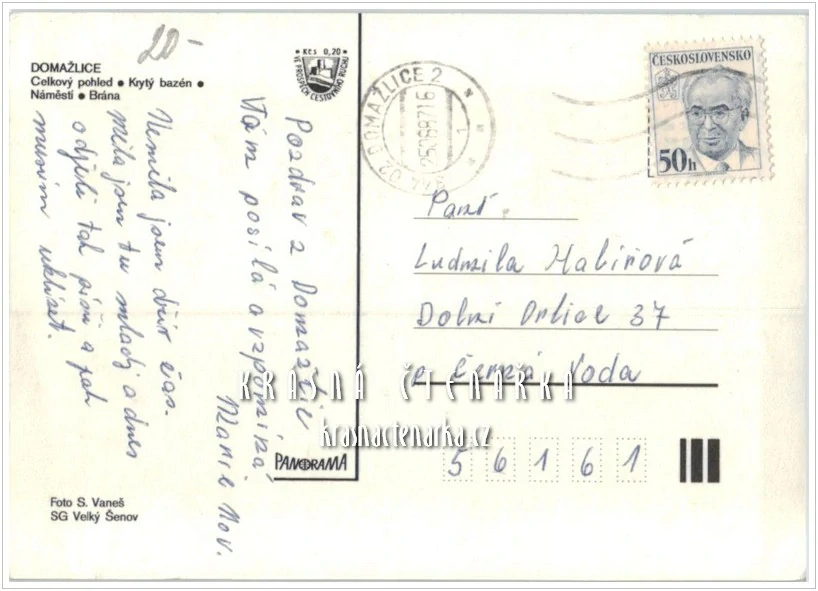 20-
DOMAŽLICE
Celkový pohled ● Krytý bazén ●
Náměstí ● Brána
Kčs 0,20
VE PROSPĚCH CESTOVNÍHO RUCHU
Pozdrav z Domažlic
Vám posílá a vzpomíná
Marie Nov.
Neměla jsem dřív čas.
měla jsem tu mladý a dnes
odjeli tak píši a pak
musím uklízet.
Foto S. Vaneš
SG Velký Šenov
PANORAMA
DOMAŽLICE 2
ČESKOSLOVENSKO
50h
Paní
Ludmila Halířová
Dolní Orlice 37
p. Černá Voda
56161
KRÁSNÁ ČTENÁŘKA
krasnactenarka.cz